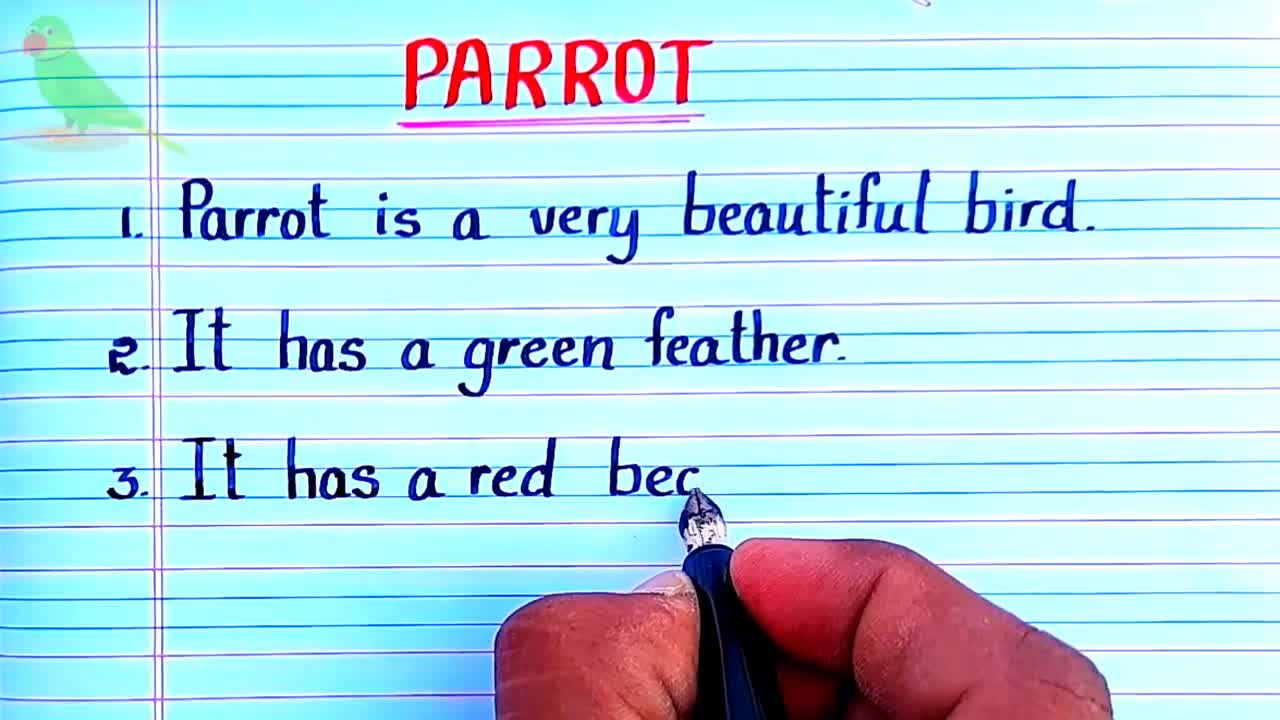 PARROT
1. Parrot is a very beautiful bird.
2. It has a green feather.
3. It has a red